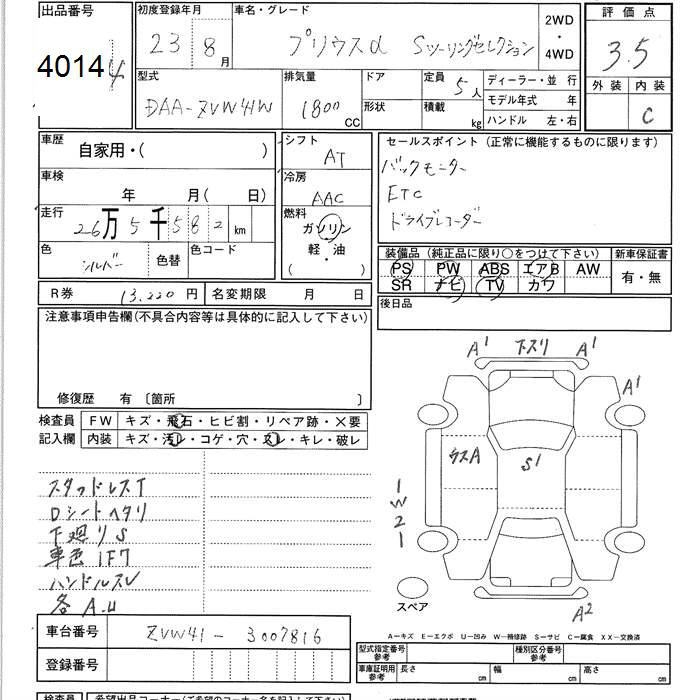 出品番号
4014
初度登録年月
23 8 月
車名・グレード
プリウスα Sツーリングセレクション
2WD
・
4WD
評価点
3.5
外装 内装
C
型式
DAA-ZVW41W
排気量
1800 CC
ドア
形状
定員 5 人
積載 kg
ディーラー・並 行
モデル年式 年
ハンドル 左・右
車歴
自家用・( )
車検
年 月( 日)
走行
26万5千582 km
色
シルバー
色替
色コード
シフト
AT
冷房
AAC
燃料
ガソリン
軽・油
( )
セールスポイント (正常に機能するものに限ります)
バックモニター
ETC
ドライブレコーダー
装備品 (純正品に限り○をつけて下さい)
PS PW ABS エアB AW
SR ナビ TV カワ
新車保証書
有・無
R券 13,220 円
名変期限 月 日
後日品
注意事項申告欄(不具合内容等は具体的に記入して下さい)
修復歴 有 〔箇所 〕
検査員
記入欄
FW キズ・飛石・ヒビ割・リペア跡・×要
内装 キズ・汚レ・コゲ・穴・スレ・キレ・破レ
スタッドレスT
Dシートヘタリ
下廻りS
車色1F7
ハンドルスレ
各A.U
A1 下スリ A1
A1
ウスA
S1
1
W
2
1
スペア
A2
A-キズ E-エクボ U-凹み W-補修跡 S-サビ C-腐食 XX-交換済
車台番号 ZVW41-3007816
登録番号
型式指定番号
参考
種別区分番号
参考
車庫証明用
参考
長さ 幅 高さ
cm cm cm
検査員 希望出品コーナー(ご希望のコーナー名を記入して下さい)